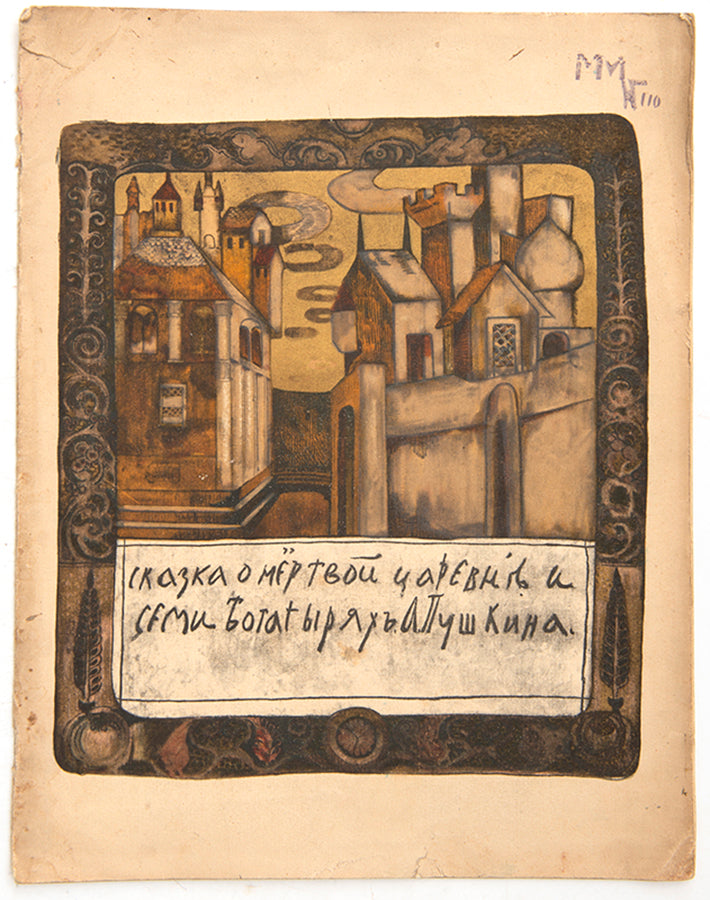 ММ
110
сказка о мёртвой царевнѣ и
семи богатыряхъ. А. Пушкина.